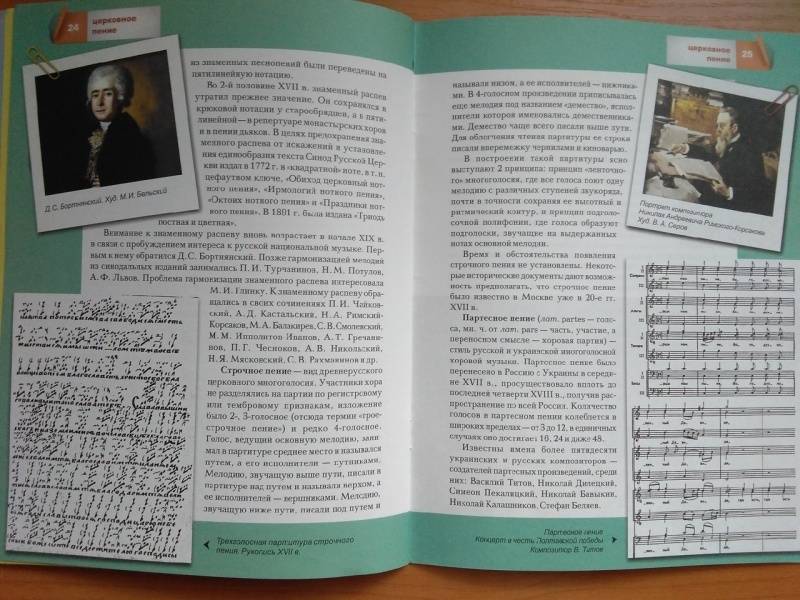 24
церковное
пение
Д.С. Бортнянский. Худ. М.И. Бельский
из знаменных песнопений были переведены на
пятилинейную нотацию.
Во 2-й половине XVII в. знаменный распев
утратил прежнее значение. Он сохранился в
крюковой нотации у старообрядцев, а в пяти-
линейной — в репертуаре монастырских хоров
и в пении дьяков. В целях предохранения зна-
менного распева от искажений и установле-
ния единообразия текста Синод Русской Цер-
кви издал в 1772 г. в «квадратной» ноте, в т.н.
цефаутном ключе, «Обиход церковный нот-
ного пения», «Ирмологий нотного пения»,
«Октоих нотного пения» и «Праздники нот-
ного пения». В 1891 г. была издана «Триодь
постная и цветная».
Внимание к знаменному распеву вновь возрастает в начале XIX в.
в связи с пробуждением интереса к русской национальной музыке. Пер-
вым к нему обратился Д.С. Бортнянский. Позже гармонизацией мелодий
из синодальных изданий занимались П.И. Турчанинов, Н.М. Потулов,
А.Ф. Львов. Проблема гармонизации знаменного распева интересовала
М.И. Глинку. К знаменному распеву обра-
щались в своих сочинениях П.И. Чайков-
ский, А.Д. Кастальский, Н.А. Римский-
Корсаков, М.А. Балакирев, С.В. Смоленский,
М.М. Ипполитов Иванов, А.Т. Гречани-
нов, П.Г. Чесноков, А.В. Никольский,
Н.Я. Мясковский, С.В. Рахманинов и др.
Строчное пение — вид древнерусского
церковного многоголосия. Участники хора
не разделялись на партии по регистровому
или тембровому признакам, изложение
было 2-, 3-голосное (отсюда термин «трое-
строчное пение») и редко 4-голосное.
Голос, ведущий основную мелодию, зани-
мал в партитуре среднее место и назывался
путем, а его исполнители — путниками.
Мелодию, звучащую выше пути, писали в
партитуре над путем и называли верхом, а
ее исполнителей — вершниками. Мелодию,
звучащую ниже пути, писали под путем и
Трехголосная партитура строчного
пения. Рукопись XVII в.
церковное
пение
25
называли низом, а ее исполнителей — нижника-
ми. В 4-голосном произведении приписывалась
еще мелодия под названием «демество», испол-
нители которой именовались демественника-
ми. Демество чаще всего писали выше пути.
Для облегчения чтения партитуры ее строки
писали вперемежку чернилами и киноварью.
В построении такой партитуры ясно
выступают 2 принципа: принцип «ленточно-
го» многоголосия, где все голоса поют одну
мелодию с различных ступеней звукоряда,
почти в точности сохраняя ее высотный и
ритмический контур, и принцип подголо-
сочной полифонии, где голоса образуют
подголоски, звучащие на выдержанных
нотах основной мелодии.
Время и обстоятельства появления
строчного пения не установлены. Некото-
рые исторические документы дают возмож-
ность предполагать, что строчное пение
было известно в Москве уже в 20-е гг.
XVII в.
Партесное пение (лат. partes — голо-
са, мн. ч. от лат. pars — часть, участие, а
переносном смысле — хоровая партия) —
стиль русской и украинской многоголосной
хоровой музыки. Партесное пение было
перенесено в Россию с Украины в середи-
не XVII в., просуществовало вплоть до
последней четверти XVIII в., получив рас-
пространение по всей России. Количество
голосов в партесном пении колеблется в
широких пределах — от 3 до 12, в единичных
случаях оно достигает 16, 24 и даже 48.
Известны имена более пятидесяти
украинских и русских композиторов —
создателей партесных произведений, среди
них: Василий Титов, Николай Дилецкий,
Симеон Пекалицкий, Николай Бавыкин,
Николай Калашников, Стефан Беляев.
Портрет композитора
Николая Андреевича Римского-Корсакова
Худ. В.А. Серов
Партесное пение
Концерт в честь Полтавской победы
Композитор В. Титов